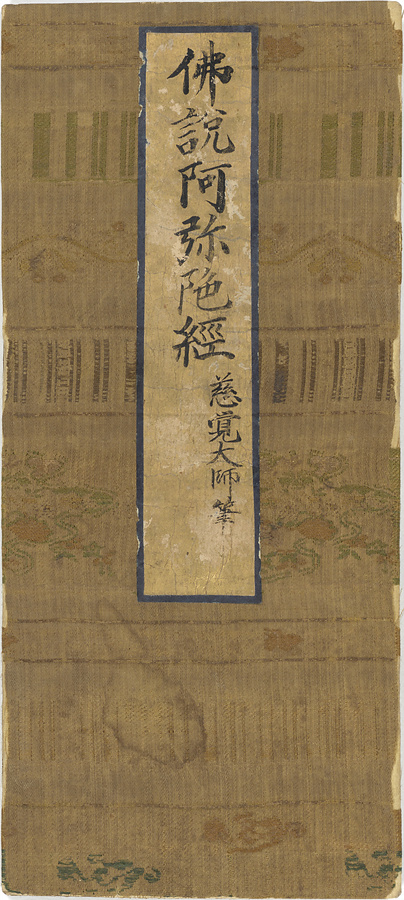 佛說阿弥陁經
慈覺大師筆